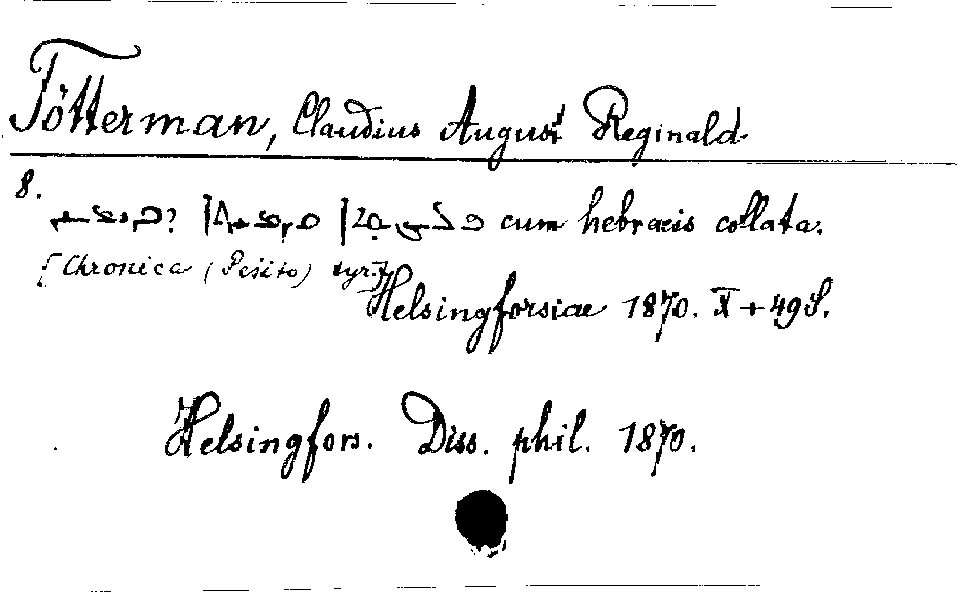 Tötterman, Claudius August Reginald
8.
cum hebraeis collata.
[Chronica (Pešito) syr.]
Helsingforsiae 1870. X + 49 S.
Helsingfors. Diss. phil. 1870.